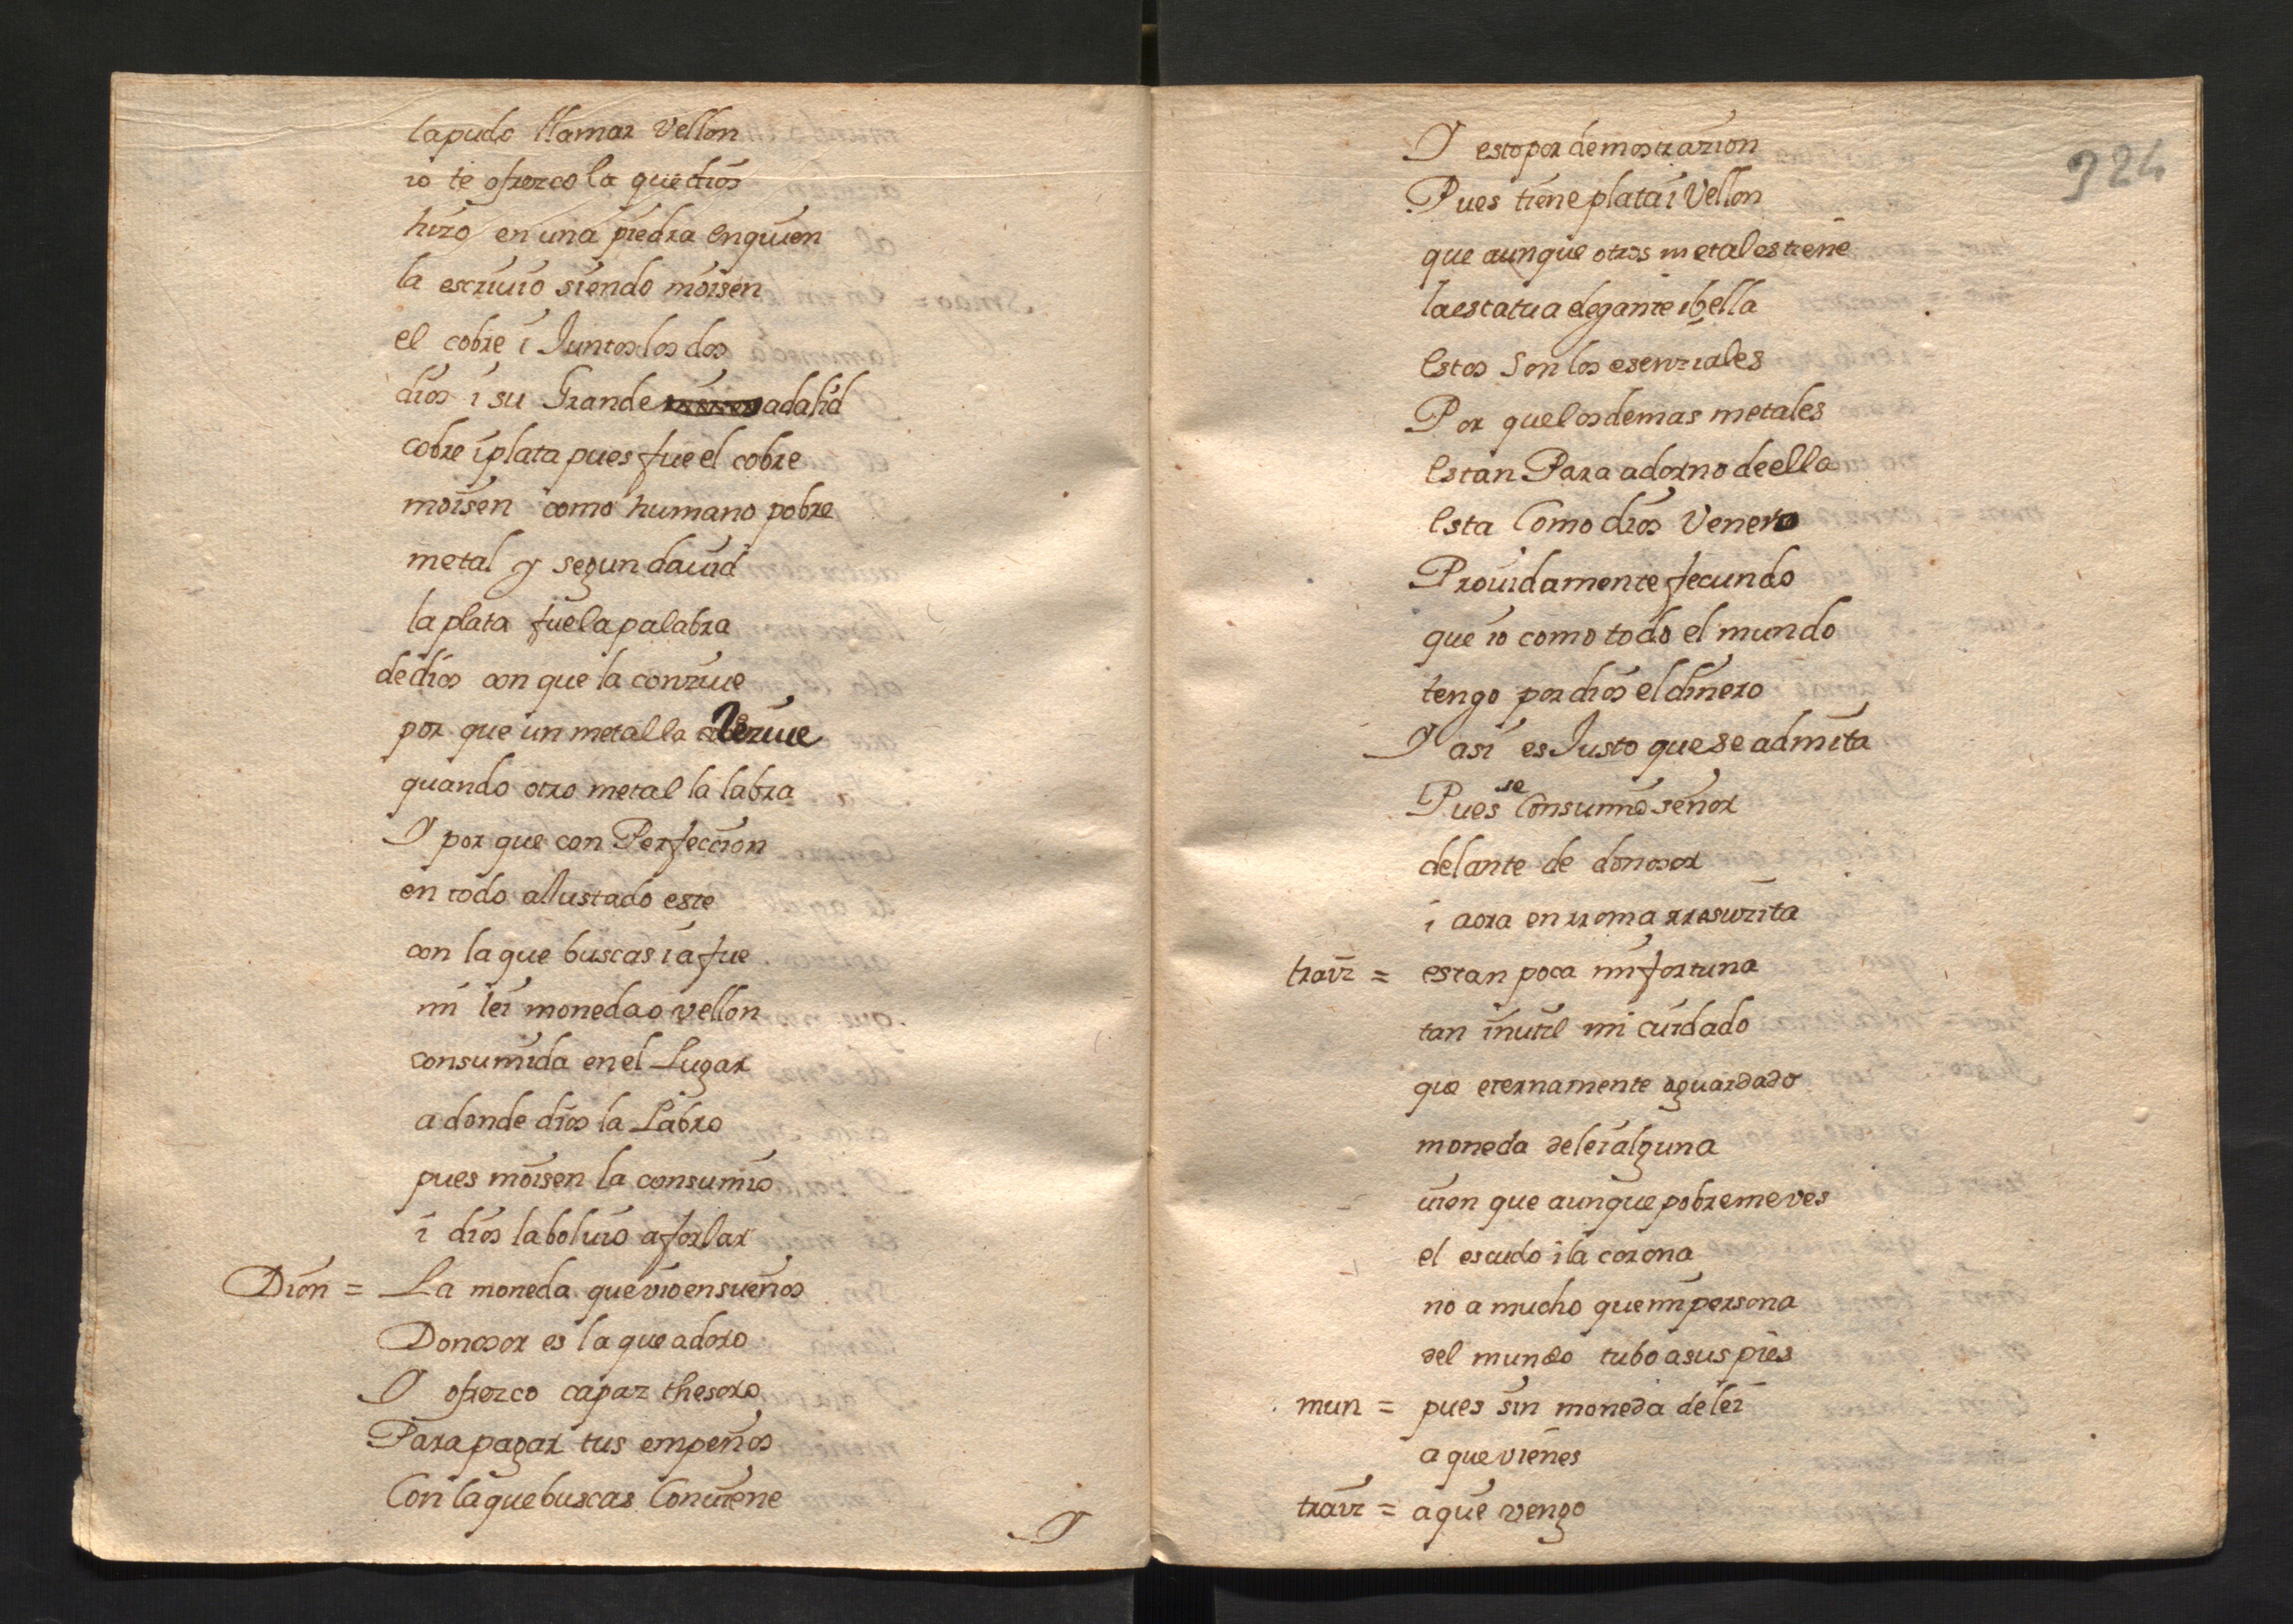 la pudo llamar vellon
io te ofrezco la que dios
hizo en una piedra en quien
la escriuio siendo moisen
el cobre i Juntos los dos
dios i su Grande adalid
cobre i plata pues fue el cobre
moisen como humano pobre
metal y segun dauid
la plata fue la palabra
de dios con que la conziue
por que un metal la
quando otro metal la labra
Y por que con Perfeccion
en todo allustado este
con la que buscas ia fue
mi lei moneda o vellon
consumida en el Lugar
a donde dios la Labro
pues moisen la consumio
i dios la boluio a forlar
Dion = La moneda que vio en sueños
Donosor es la que adoro
Y ofrezco capaz thesoro
Para pagar tus empeños
Con la que buscas Conuiene
Y
324
Y esto por demostrazion
Pues tiene plata i Vellon
que aunque otros metales tiene
la estatua elegante i bella
estos son los esenziales
Por que los demas metales
estan Para adorno de ella
esta Como dios Venero
Prouidamente fecundo
que io como todo el mundo
tengo por dios el dinero
Y asi es Justo que se admita
Pues se Consumio señor
delante de donosor
i aora en rroma rresuzita
traiz = es tan poca mi fortuna
tan inutil mi cuidado
que eternamente aguardado
moneda de lei alguna
uien que aunque pobre me ves
el escudo i la corona
no a mucho que mi persona
del mundo tubo a sus pies
mun = pues sin moneda de lei
a que vienes
traiz = a que vengo